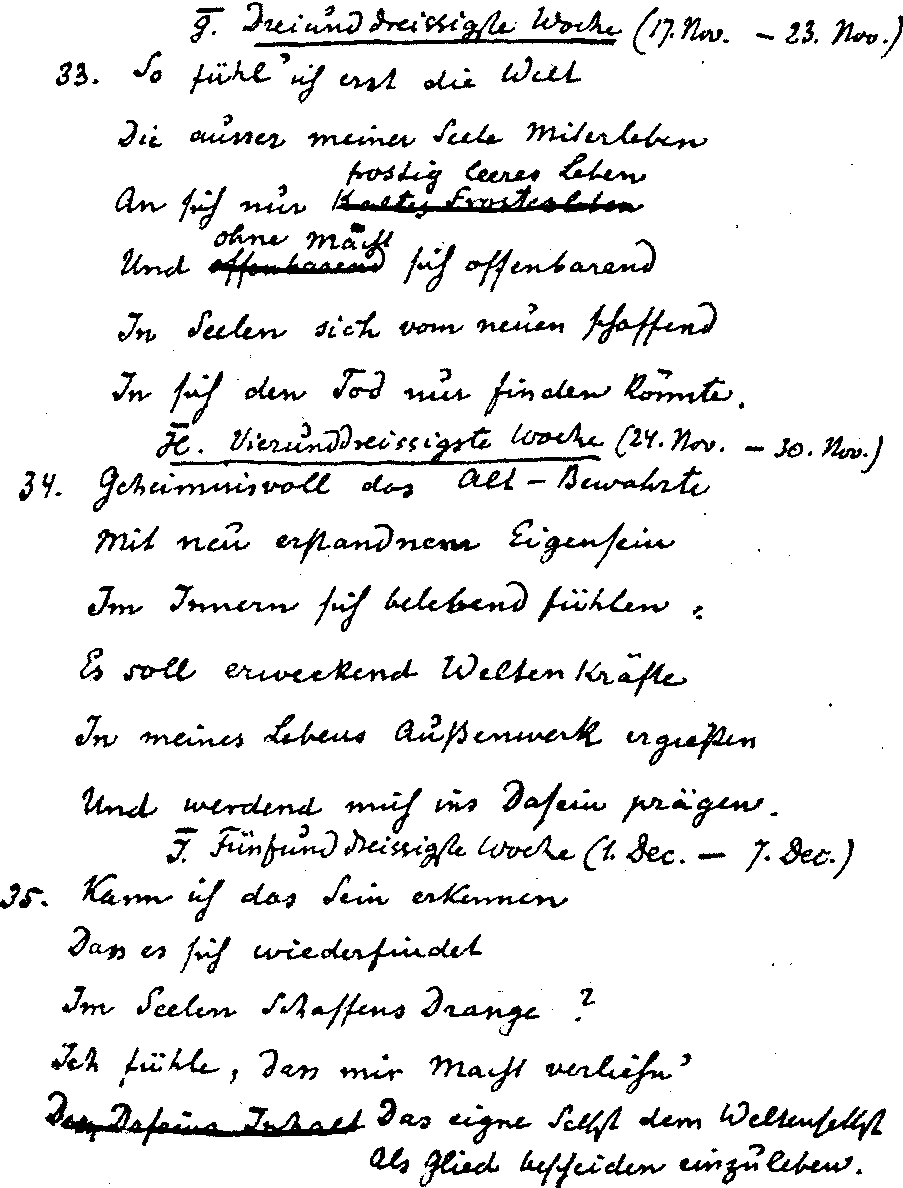 G. Dreiunddreissigste Woche (17. Nov. – 23. Nov.)
33. So fühl' ich erst die Welt
Die ausser meiner Seele Miterleben
frostig leeres Leben
An sich nur kaltes Frostesleben
ohne Macht
Und offenbarend sich offenbarend
In Seelen sich vom neuen schaffend
In sich den Tod nur finden könnte.
H. Vierunddreissigste Woche (24. Nov. – 30. Nov.)
34. Geheimnisvoll das Alt-Bewahrte
Mit neu erstandnem Eigensein
Im Innern sich belebend fühlen:
Es soll erweckend Weltenkräfte
In meines Lebens Außenwerk ergießen
Und werdend mich ins Dasein prägen.
J. Fünfunddreissigste Woche (1. Dec. – 7. Dec.)
35. Kann ich das Sein erkennen
Dass es sich wiederfindet
Im Seelen Schaffens Drange?
Ich fühle, dass mir Macht verlieh'n
Des Daseins Inhalt Das eigne Selbst dem Weltenselbst
Als Glied bescheiden einzuleben.